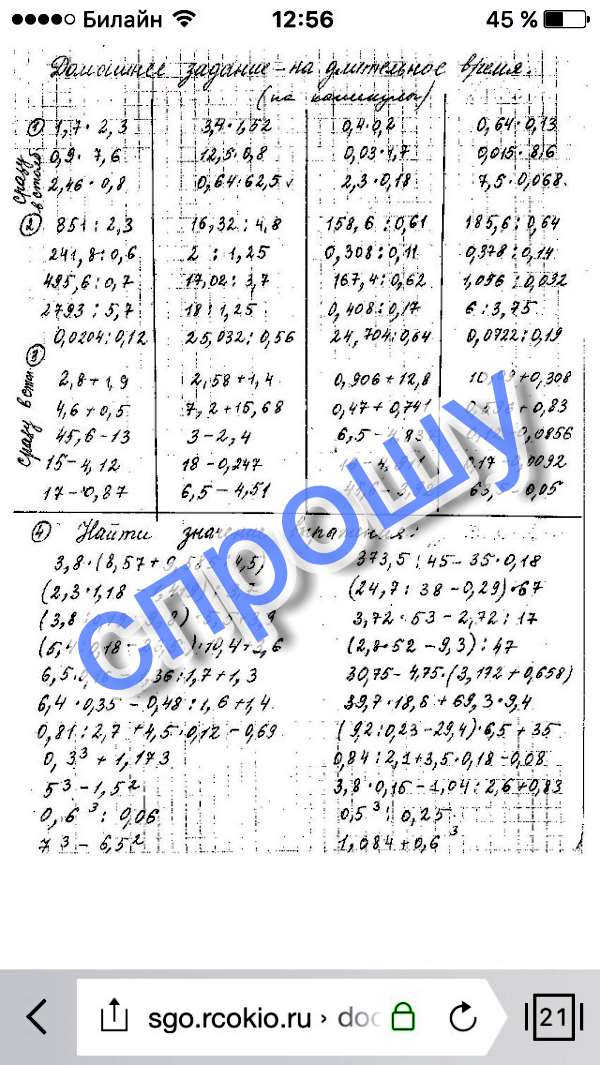 Билайн 12:56 45 %
Домашнее задание - на длительное время.
(на каникулы)
сразу в столб.
① 1,7 · 2,3 3,4 · 1,52 0,4 · 0,2 0,64 · 0,13
0,9 · 7,6 12,5 · 0,8 0,03 · 1,7 0,015 · 8,6
2,46 · 0,8 0,64 : 62,5 2,3 · 0,18 7,5 · 0,068
② 851 : 2,3 16,32 : 4,8 158,6 : 0,61 185,6 : 0,64
241,8 : 0,6 2 : 1,25 0,308 : 0,11 0,378 : 0,14
495,6 : 0,7 17,02 : 3,7 167,4 : 0,62 1,056 : 0,032
2793 : 5,7 18 : 1,25 0,408 : 0,17 6 : 3,75
0,0204 : 0,12 25,032 : 0,56 24,704 : 0,64 0,0722 : 0,19
сразу в стол.
③ 2,8 + 1,9 2,58 + 1,4 0,906 + 12,8 + 0,308
4,6 + 0,5 7,2 + 15,68 0,47 + 0,741 + 0,83
45,6 - 13 3 - 2,4 6,5 - 4,837 0,0856
15 - 4,12 18 - 0,247 0,17 - 0,0092
17 - 0,87 6,5 - 4,51 - 0,05
спрошу
④ Найти значение выражения:
3,8 · (8,57 + 4,5) 373,5 : 45 - 35 · 0,18
(2,3 · 1,18 (24,7 : 38 - 0,29) · 67
(3,8 3,72 · 53 - 2,72 : 17
(5,4 : 10,4 + 3,6 (2,8 · 52 - 9,3) : 47
6,5 · : 1,7 + 1,3 30,75 - 4,75 · (3,192 + 0,658)
6,4 · 0,35 - 0,48 : 1,6 + 1,4 39,7 · 18,6 + 69,3 · 9,4
0,81 : 2,7 + 4,5 · 0,12 - 0,69 (9,2 : 0,23 - 29,4) · 6,5 + 35
0,3³ + 1,173 0,84 : 2,1 + 3,5 · 0,18 - 0,08
5³ - 1,5² 3,8 · 0,15 - 1,04 : 2,6 + 0,83
0,6³ : 0,06 0,5³ : 0,25
7³ - 6,5² 1,084 + 0,6³
sgo.rcokio.ru › doc 21